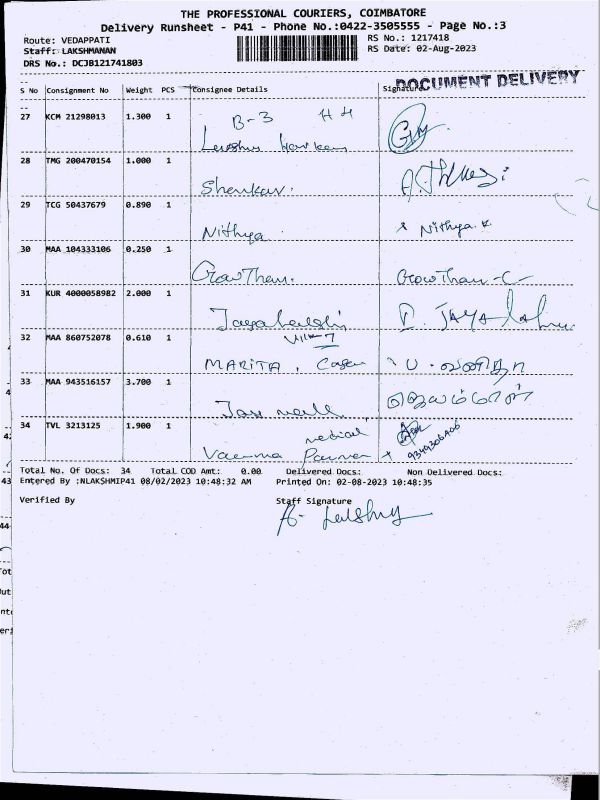 THE PROFESSIONAL COURIERS, COIMBATORE
Delivery Runsheet - P41 - Phone No.:0422-3505555 - Page No.:3
Route: VEDAPPATI
RS No.: 1217418
Staff: LAKSHMANAN
RS Date: 02-Aug-2023
DRS No.: DCJB121741803
DOCUMENT DELIVERY
S No Consignment No Weight PCS Consignee Details Signature
27 KCM 21298013 1.300 1 B-3 H4
28 TMG 200470154 1.000 1
Shenkar.
29 TCG 50437679 0.890 1
Nithya x Nithya.K
30 MAA 104333106 0.250 1
GowTham. GowTham-C
31 KUR 4000058982 2.000 1
32 MAA 860752078 0.610 1
MARITA,
33 MAA 943516157 3.700 1
34 TVL 3213125 1.900 1
Total No. Of Docs: 34 Total COD Amt: 0.00 Delivered Docs: Non Delivered Docs:
Entered By :NLAKSHMIP41 08/02/2023 10:48:32 AM Printed On: 02-08-2023 10:48:35
Verified By Staff Signature